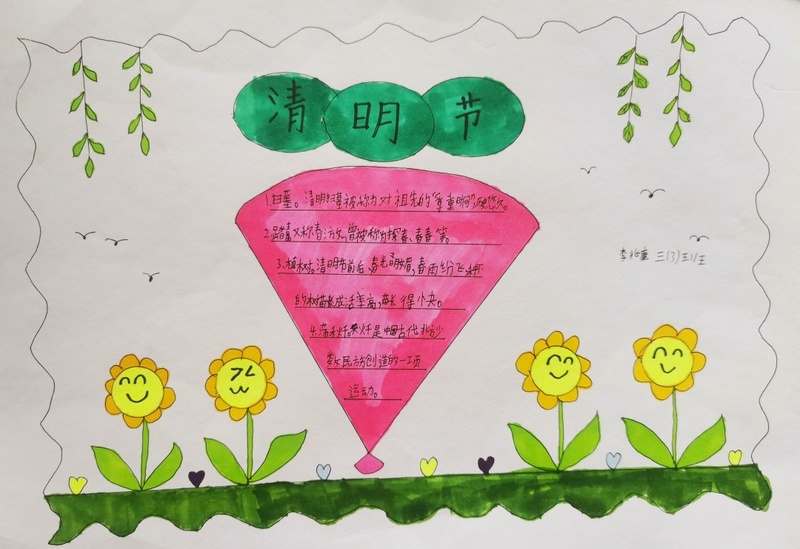 清明节
1.扫墓。清明扫墓被称为对祖先的“尊重时间”,
2.踏青又称春游,曾被称为探春、寻春等。
3.植树。清明节前后,春光明媚,春雨纷飞,种
的树苗成活率高,成长得小快。
4.荡秋千。秋千是中国古代北
民族创造的一项
运动。
李 三(3)班